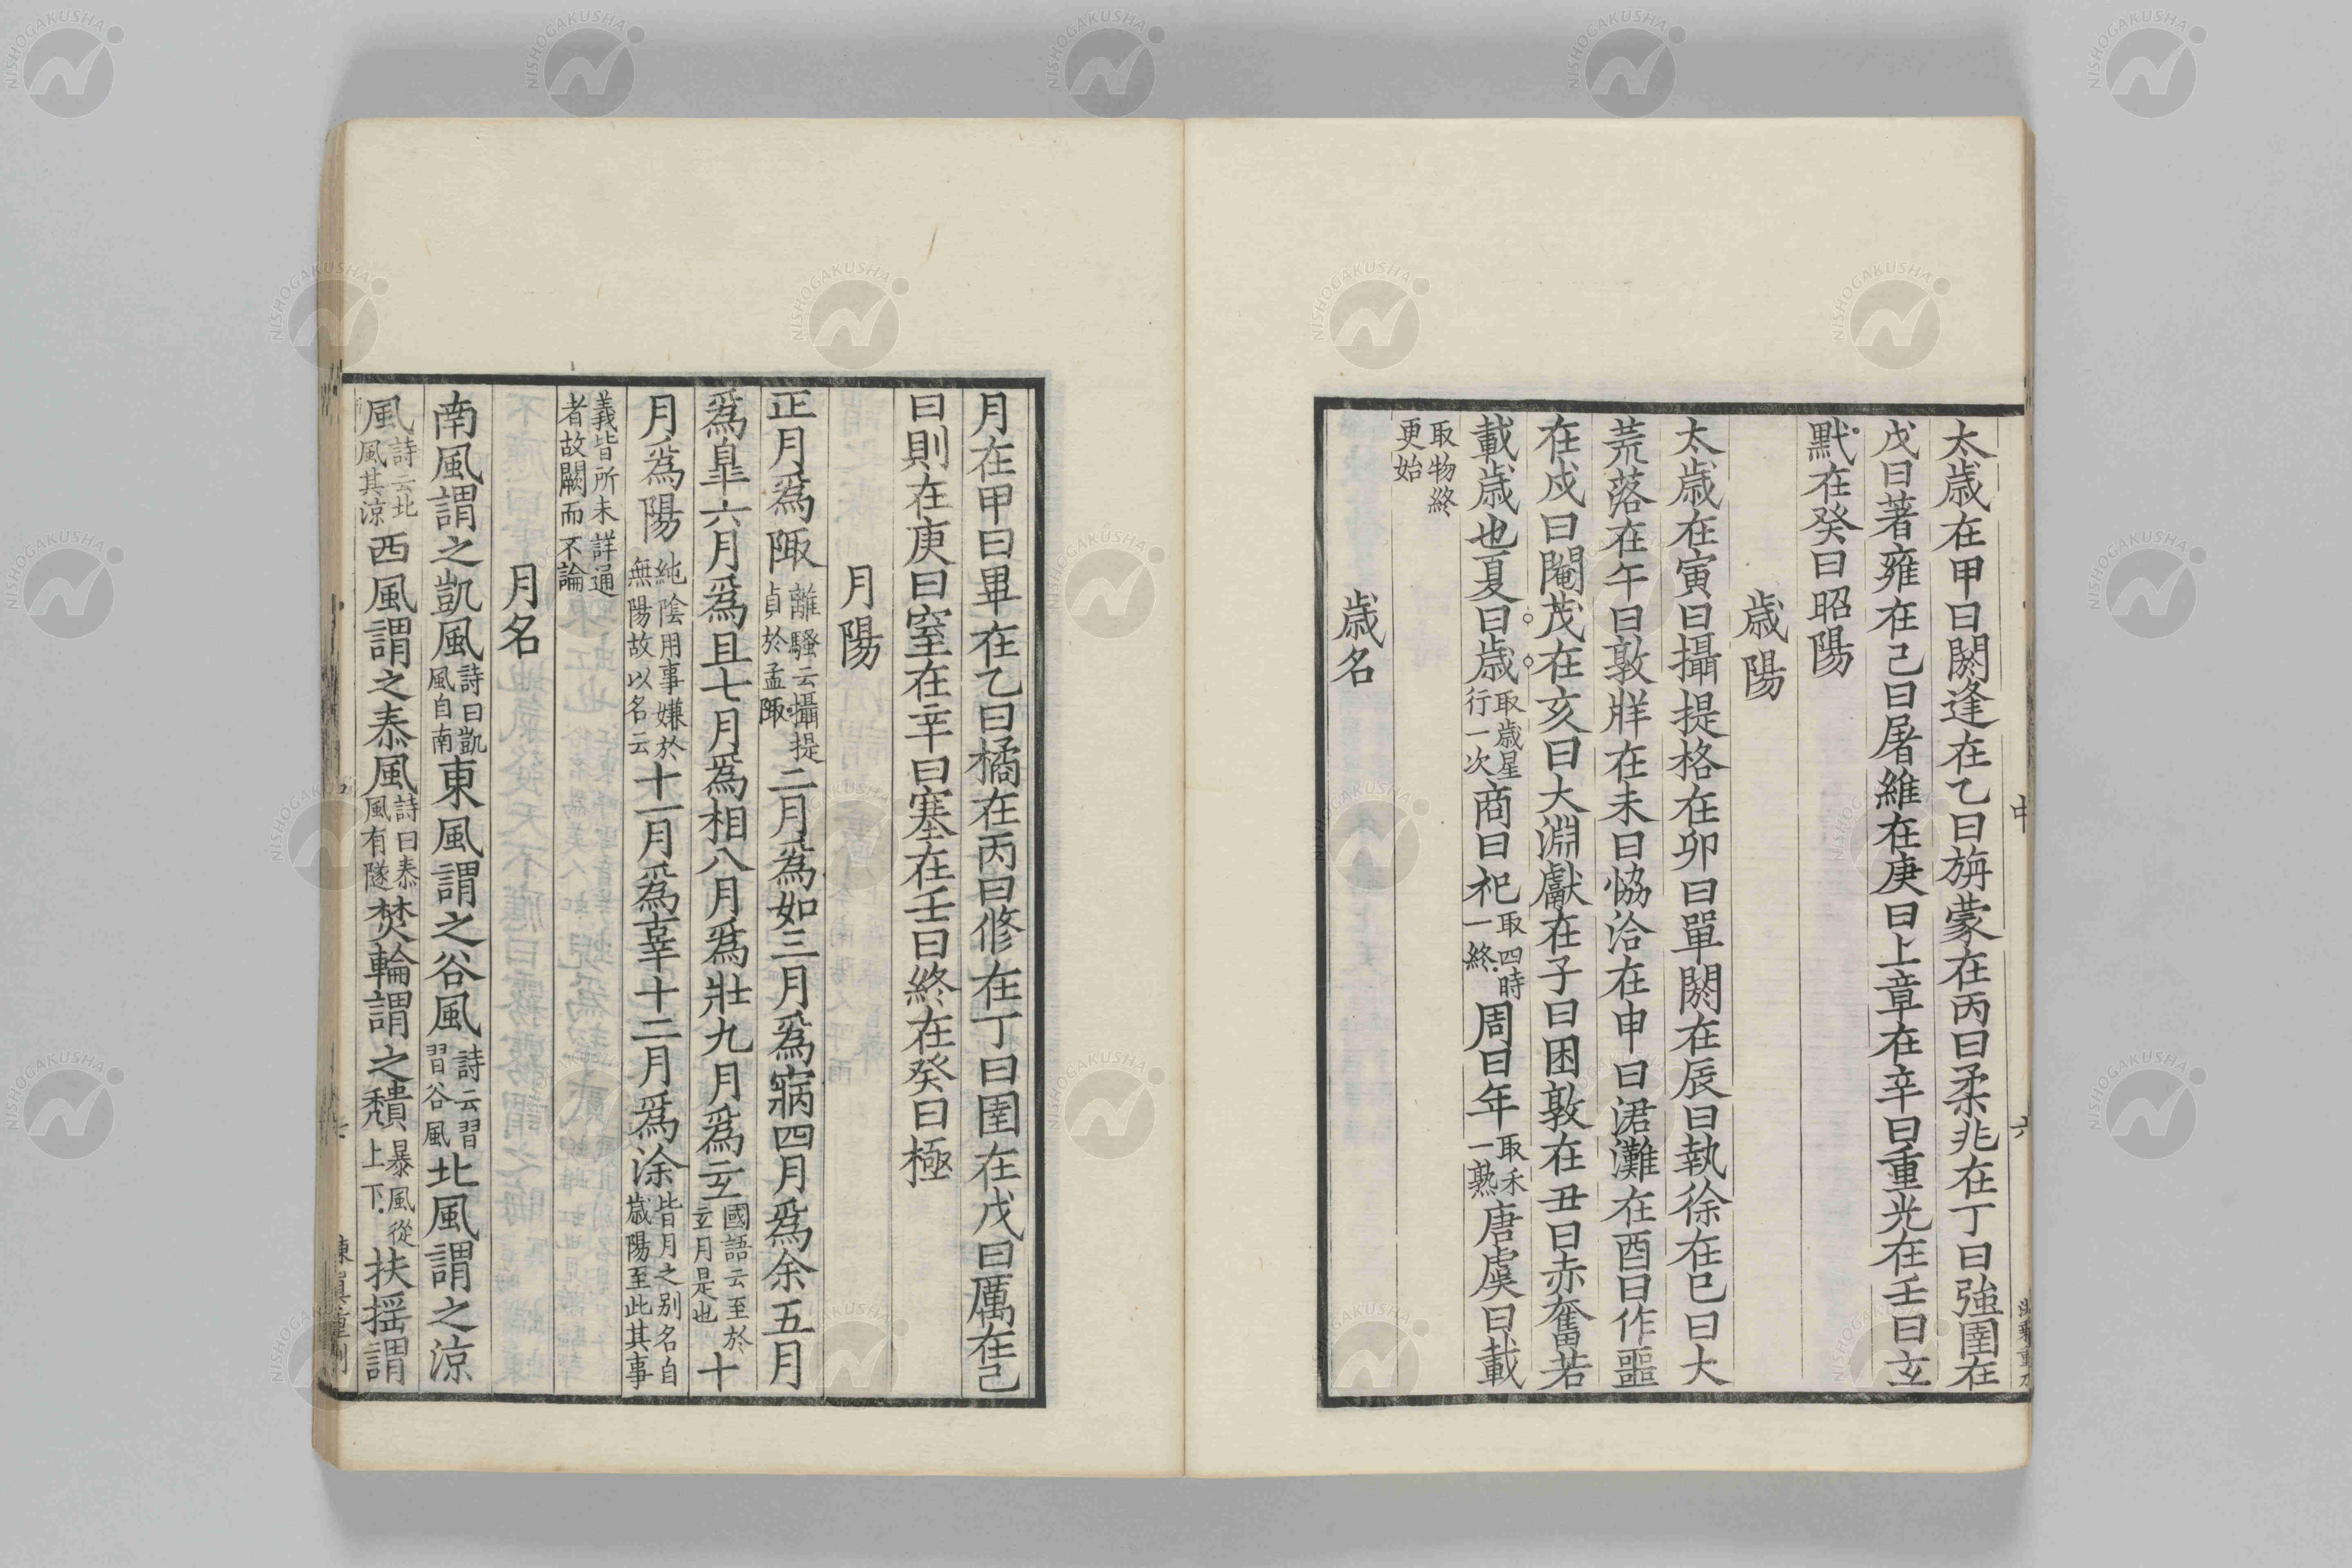 太歳在甲曰閼逢在乙曰旃蒙在丙曰柔兆在丁曰強圉在
戊曰著雍在己曰屠維在庚曰上章在辛曰重光在壬曰玄
黓在癸曰昭陽
歳陽
太歳在寅曰攝提格在卯曰單閼在辰曰執徐在巳曰大
荒落在午曰敦牂在未曰協洽在申曰涒灘在酉曰作噩
在戌曰閹茂在亥曰大淵獻在子曰困敦在丑曰赤奮若
載歳也夏曰歳取歳星行一次商曰祀取四時一終周曰年取禾一熟唐虞曰載
取物終更始
歳名
月在甲曰畢在乙曰橘在丙曰修在丁曰圉在戊曰厲在己
曰則在庚曰窒在辛曰塞在壬曰終在癸曰極
月陽
正月爲陬離騷云攝提貞於孟陬二月爲如三月爲寎四月爲余五月
爲皐六月爲且七月爲相八月爲壯九月爲玄國語云至於玄月是也十
月爲陽純陰用事嫌於無陽故以名云十一月爲辜十二月爲涂皆月之別名自歳陽至此其事
義皆所未詳通者故闕而不論
月名
南風謂之凱風詩曰凱風自南東風謂之谷風詩云習習谷風北風謂之涼
風詩云北風其涼西風謂之泰風詩曰泰風有隧焚輪謂之穨暴風從上下扶搖謂
NISHOGAKUSHA